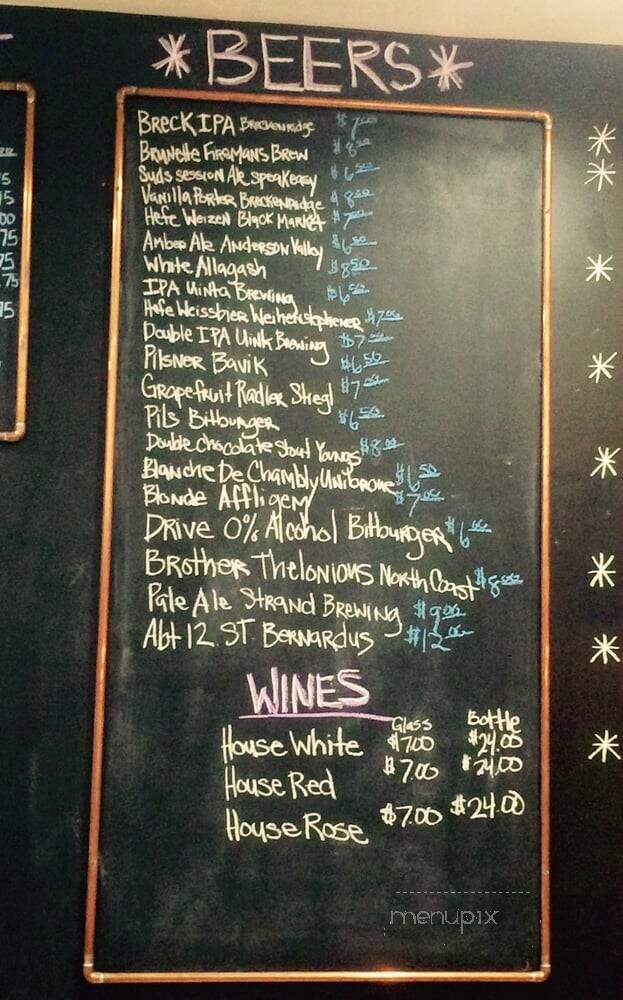 *BEERS*
BRECK IPA BRECKENRIDGE $7.00
Brunette Firemans Brew $8.00
Suds session Ale speakeasy $6.50
Vanilla Porter Breckenridge $8.00
Hefe Weizen Black Market $7.00
Amber Ale Anderson Valley $6.50
White Allagash $8.50
IPA Uinta Brewing $6.50
Hefe Weissbier Weihenstephener $7.00
Double IPA Uink Brewing $7.00
Pilsner Bavik $6.50
Grapefruit Radler Stiegl $7.00
Pils Bitburger $6.50
Double Chocolate Stout Youngs $8.00
Blanche De Chambly Unibroue $6.50
Blonde Affligem $7.00
Drive 0% Alcohol Bitburger $6.00
Brother Thelonious North Coast $8.00
Pale Ale Strand Brewing $9.00
Abt 12 ST. Bernardus $12.00
WINES
Glass Bottle
House White $7.00 $24.00
House Red $7.00 $24.00
House Rose $7.00 $24.00
menupix
5
5
00
75
75
.75
75